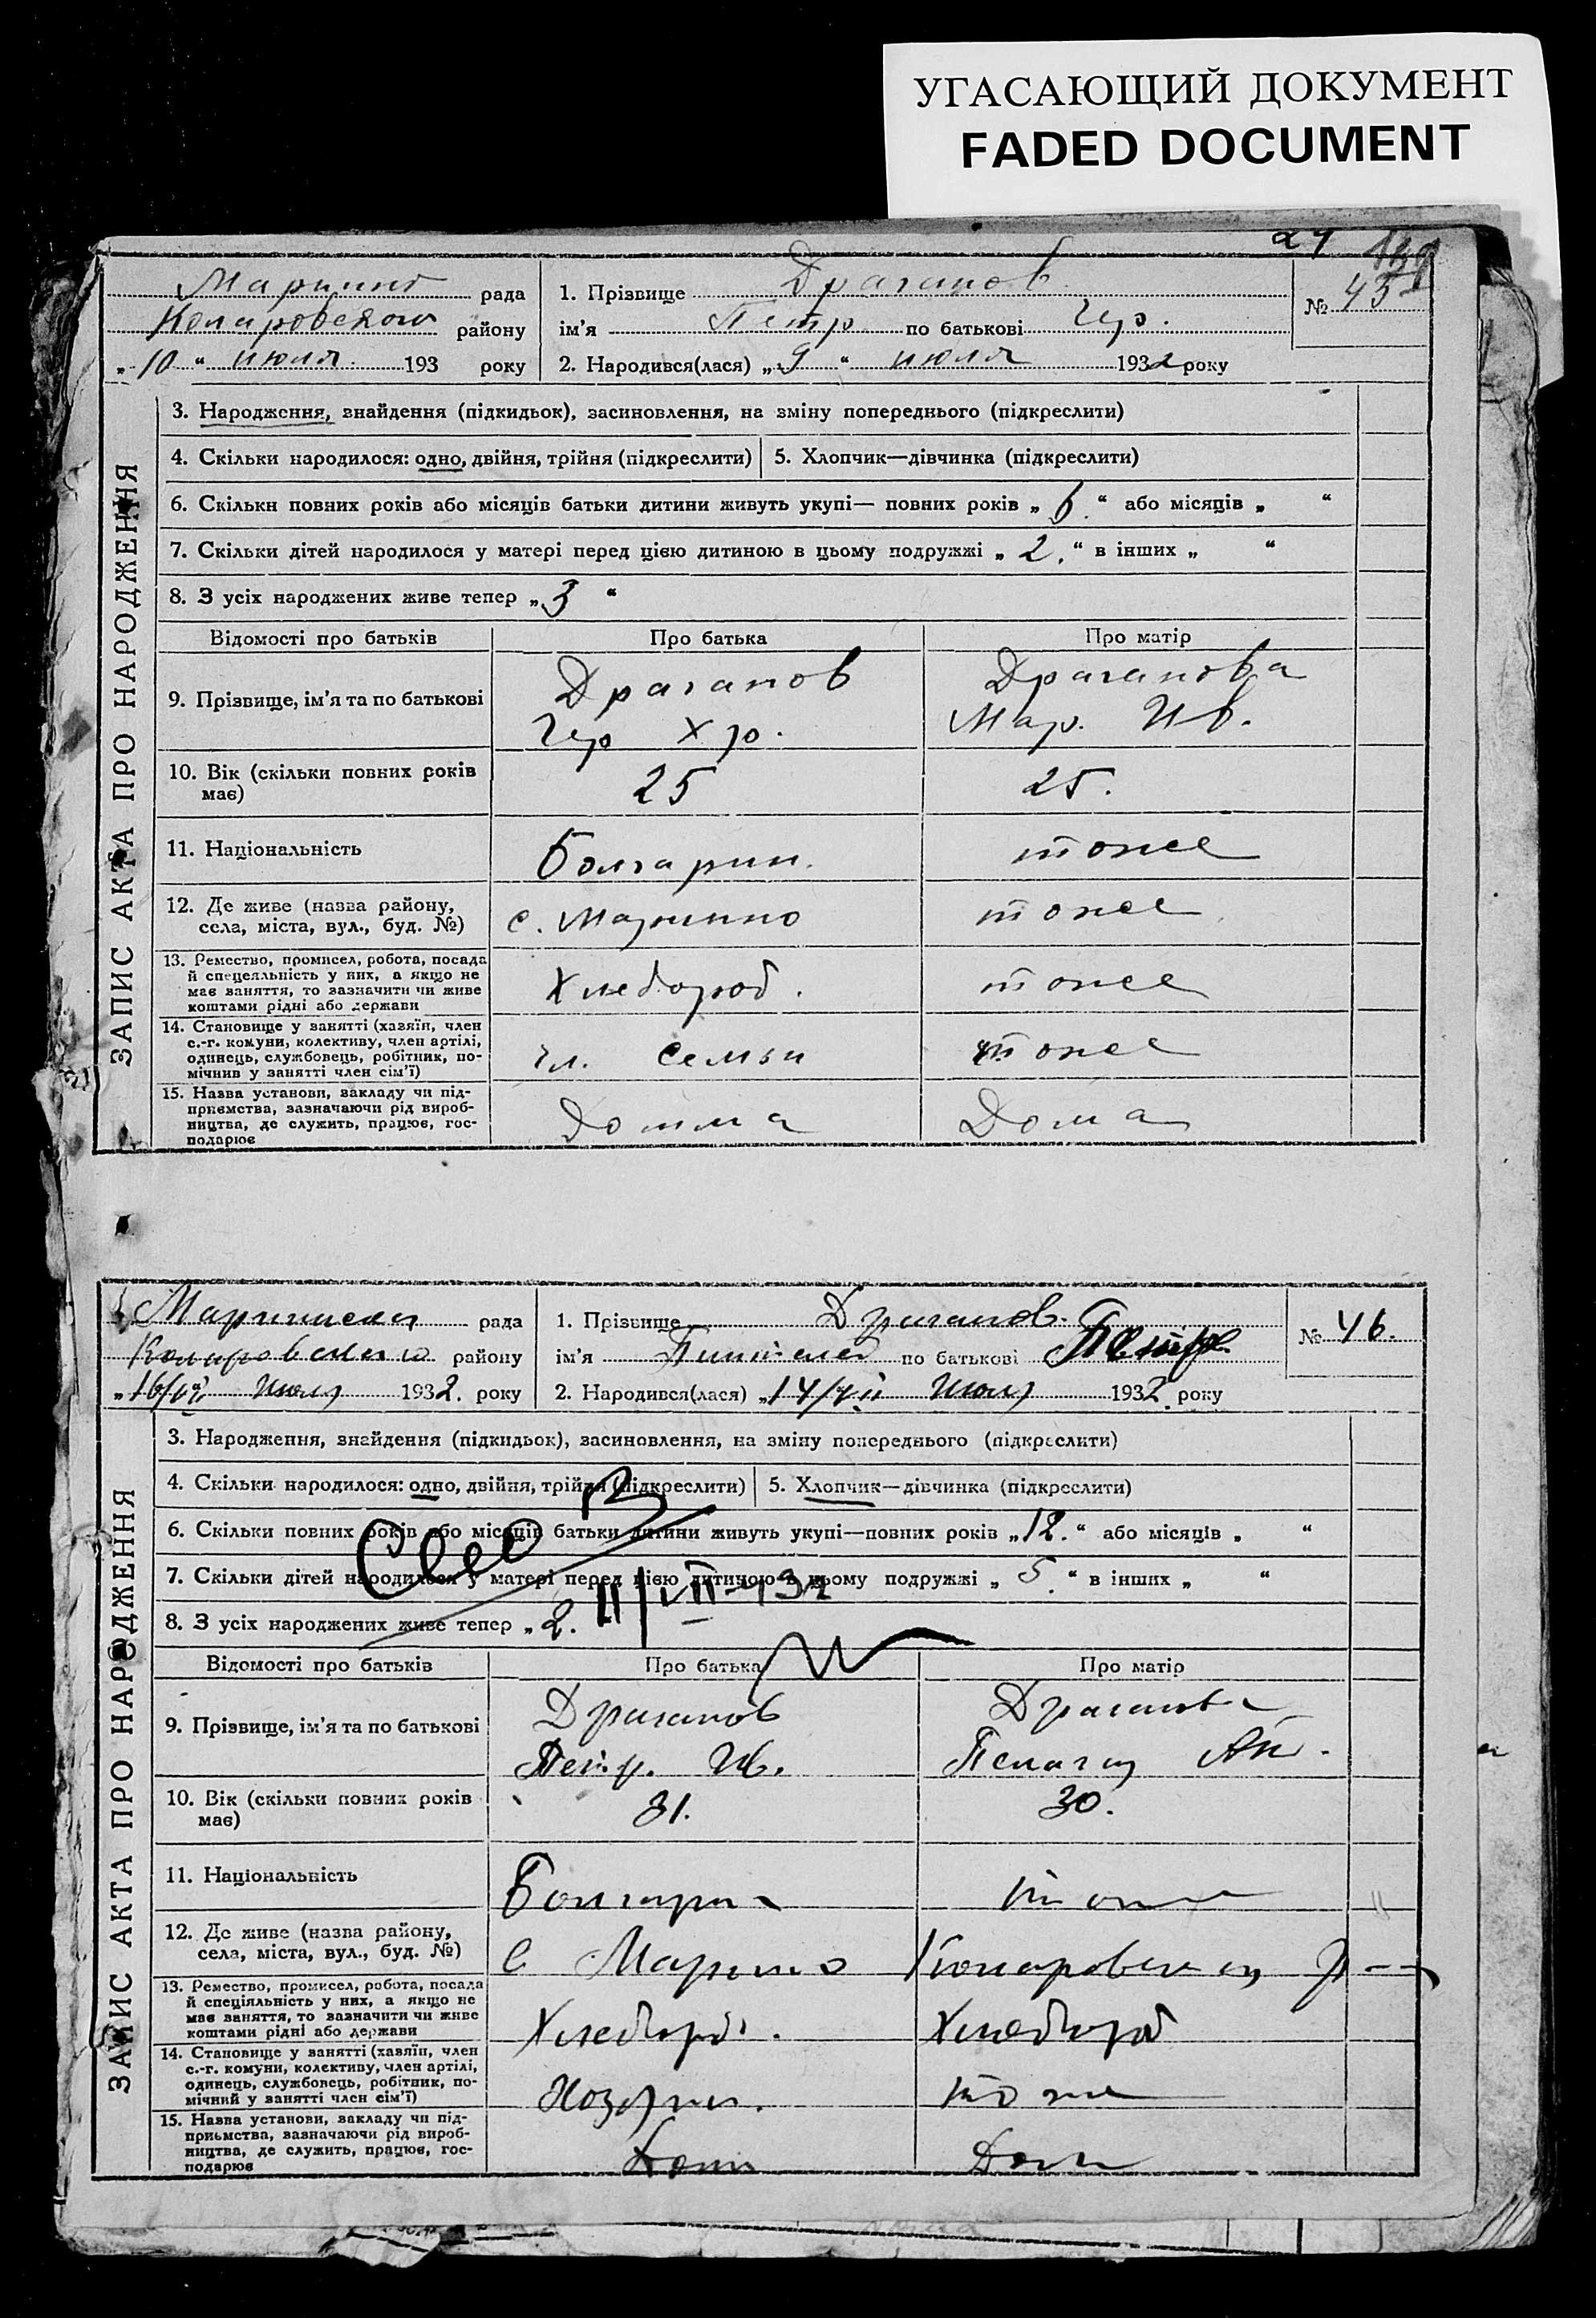 УГАСАЮЩИЙ ДОКУМЕНТ
FADED DOCUMENT
24
Марино рада
Коларовского району
„10“ июля 193 року
1. Прізвище Драганов
ім'я Петр по батькові Гер.
2. Народився(лася) „9“ июля 1932 року
№ 45
ЗАПИС АКТА ПРО НАРОДЖЕННЯ
3. Народження, знайдення (підкидьок), засиновлення, на зміну попереднього (підкреслити)
4. Скільки народилося: одно, двійня, трійня (підкреслити) 5. Хлопчик—дівчинка (підкреслити)
6. Скільки повних років або місяців батьки дитини живуть укупі— повних років „6.“ або місяців „ “
7. Скільки дітей народилося у матері перед цією дитиною в цьому подружжі „2.“ в інших „ “
8. З усіх народжених живе тепер „3“
Відомості про батьків Про батька Про матір
9. Прізвище, ім'я та по батькові
Драганов
Гер Хр.
Драганова
Мар. Ив.
10. Вік (скільки повних років
має)
25
25.
11. Національність
Болгарин.
тоже
12. Де живе (назва району,
села, міста, вул., буд. №)
с. Марино
тоже
13. Ремество, промисел, робота, посада
й спецеяльність у них, а якщо не
має заняття, то зазначити чи живе
коштами рідні або держави
Хлебороб.
тоже
14. Становище у занятті (хазяїн, член
с.-г. комуни, колективу, член артілі,
одинець, службовець, робітник, по-
мічнив у занятті член сім'ї)
чл. семьи
тоже
15. Назва установи, закладу чи під-
приємства, зазначаючи рід вироб-
ництва, де служить, працює, гос-
подарює
Дома
Дома
рада
Коларовского району
июля 1932. року
1. Прізвище Драганов.
ім'я Пантелей по батькові Петр.
2. Народився(лася) июля 1932. року
№ 46.
ЗАПИС АКТА ПРО НАРОДЖЕННЯ
3. Народження, знайдення (підкидьок), засиновлення, на зміну попереднього (підкреслити)
4. Скільки народилося: одно, двійня, трійня (підкреслити) 5. Хлопчик—дівчинка (підкреслити)
6. Скільки повних років або місяців батьки дитини живуть укупі—повних років „12.“ або місяців „ “
7. Скільки дітей народилося у матері перед цією дитиною в цьому подружжі „5.“ в інших „ “
8. З усіх народжених живе тепер „2.
Відомості про батьків Про батька Про матір
9. Прізвище, ім'я та по батькові
Драганов
Петр. Ив.
Драганова
Пелагия Ан.
10. Вік (скільки повних років
має)
31.
30.
11. Національність
Болгарин
тоже
12. Де живе (назва району,
села, міста, вул., буд. №)
с Марино Коларовский р
13. Ремество, промисел, робота, посада
й спеціяльність у них, а якщо не
має заняття, то зазначити чи живе
коштами рідні або держави
Хлебороб.
Хлебороб
14. Становище у занятті (хазяїн, член
с.-г. комуни, колективу, член артілі,
одинець, службовець, робітник, по-
мічний у занятті член сім'ї)
Хозяин.
тоже
15. Назва установи, закладу чи під-
приємства, зазначаючи рід вироб-
ництва, де служить, працює, гос-
подарює
Дома
Дома